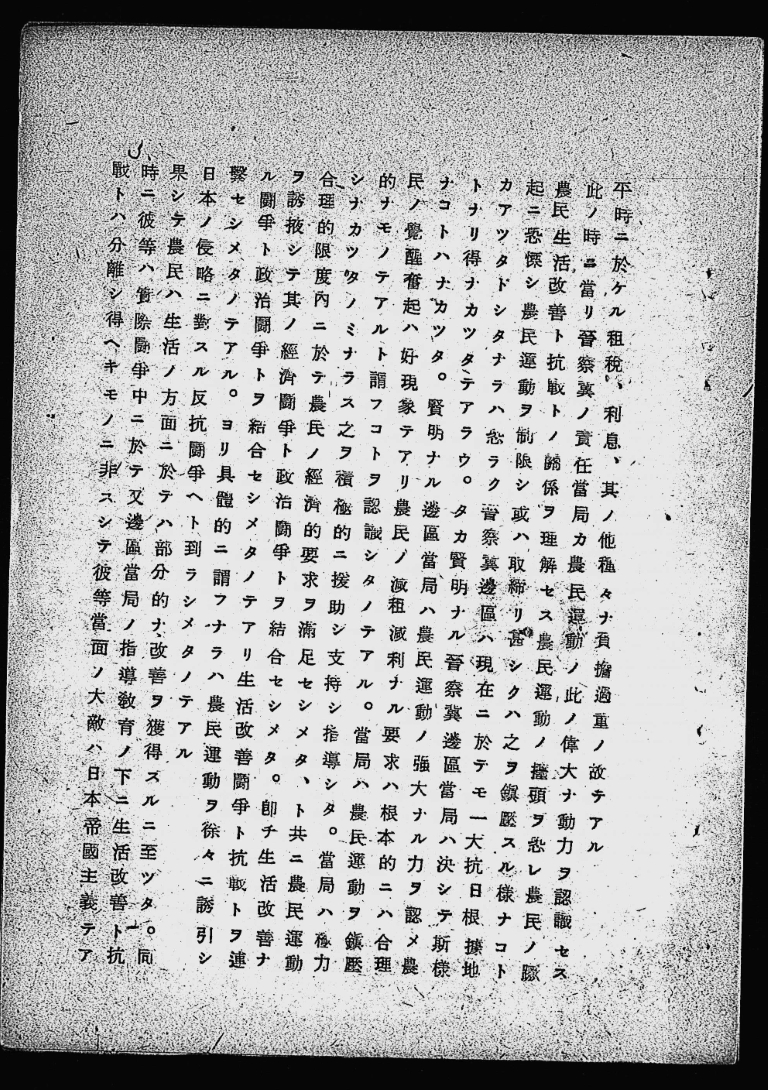 平時ニ於ケル租税、利息、其ノ他種々ナ負擔過重ノ故テアル
此ノ時ニ當リ晉察冀ノ責任當局カ農民運動ノ此ノ偉大ナ動力ヲ認識セス
農民生活改善ト抗戰トノ關係ヲ理解セス農民運動ノ擡頭ヲ恐レ農民ノ蹶
起ニ恐慄シ農民運動ヲ制限シ或ハ取締リ甚シクハ之ヲ鎭壓スル樣ナコト
カアツタトシタナラハ恐ラク晉察冀邊區ハ現在ニ於テモ一大抗日根據地
トナリ得ナカツタテアラウ。タカ賢明ナル晉察冀邊區當局ハ決シテ斯樣
ナコトハナカツタ。賢明ナル邊區當局ハ農民運動ノ強大ナル力ヲ認メ農
民ノ覺醒奮起ハ好現象テアリ農民ノ減租減利ナル要求ハ根本的ニハ合理
的ナモノテアルト謂フコトヲ認識シタノテアル。當局ハ農民運動ヲ鎭壓
シナカツタノミナラス之ヲ積極的ニ援助シ支持シ指導シタ。當局ハ極力
合理的限度内ニ於テ農民ノ經濟的要求ヲ滿足セシメタ、ト共ニ農民運動
ヲ誘掖シテ其ノ經濟鬪爭ト政治鬪爭トヲ結合セシメタ。卽チ生活改善ナ
ル鬪爭ト政治鬪爭トヲ結合セシメタノテアリ生活改善鬪爭ト抗戰トヲ連
繫セシメタノテアル。ヨリ具體的ニ謂フナラハ農民運動ヲ徐々ニ誘引シ
日本ノ侵略ニ對スル反抗鬪爭ヘト到ラシメタノテアル
果シテ農民ハ生活ノ方面ニ於テハ部分的ナ改善ヲ獲得スルニ至ツタ。同
時ニ彼等ハ實際鬪爭中ニ於テ又邊區當局ノ指導敎育ノ下ニ生活改善ト抗
戰トハ分離シ得ヘキモノニ非スシテ彼等當面ノ大敵ハ日本帝國主義テア